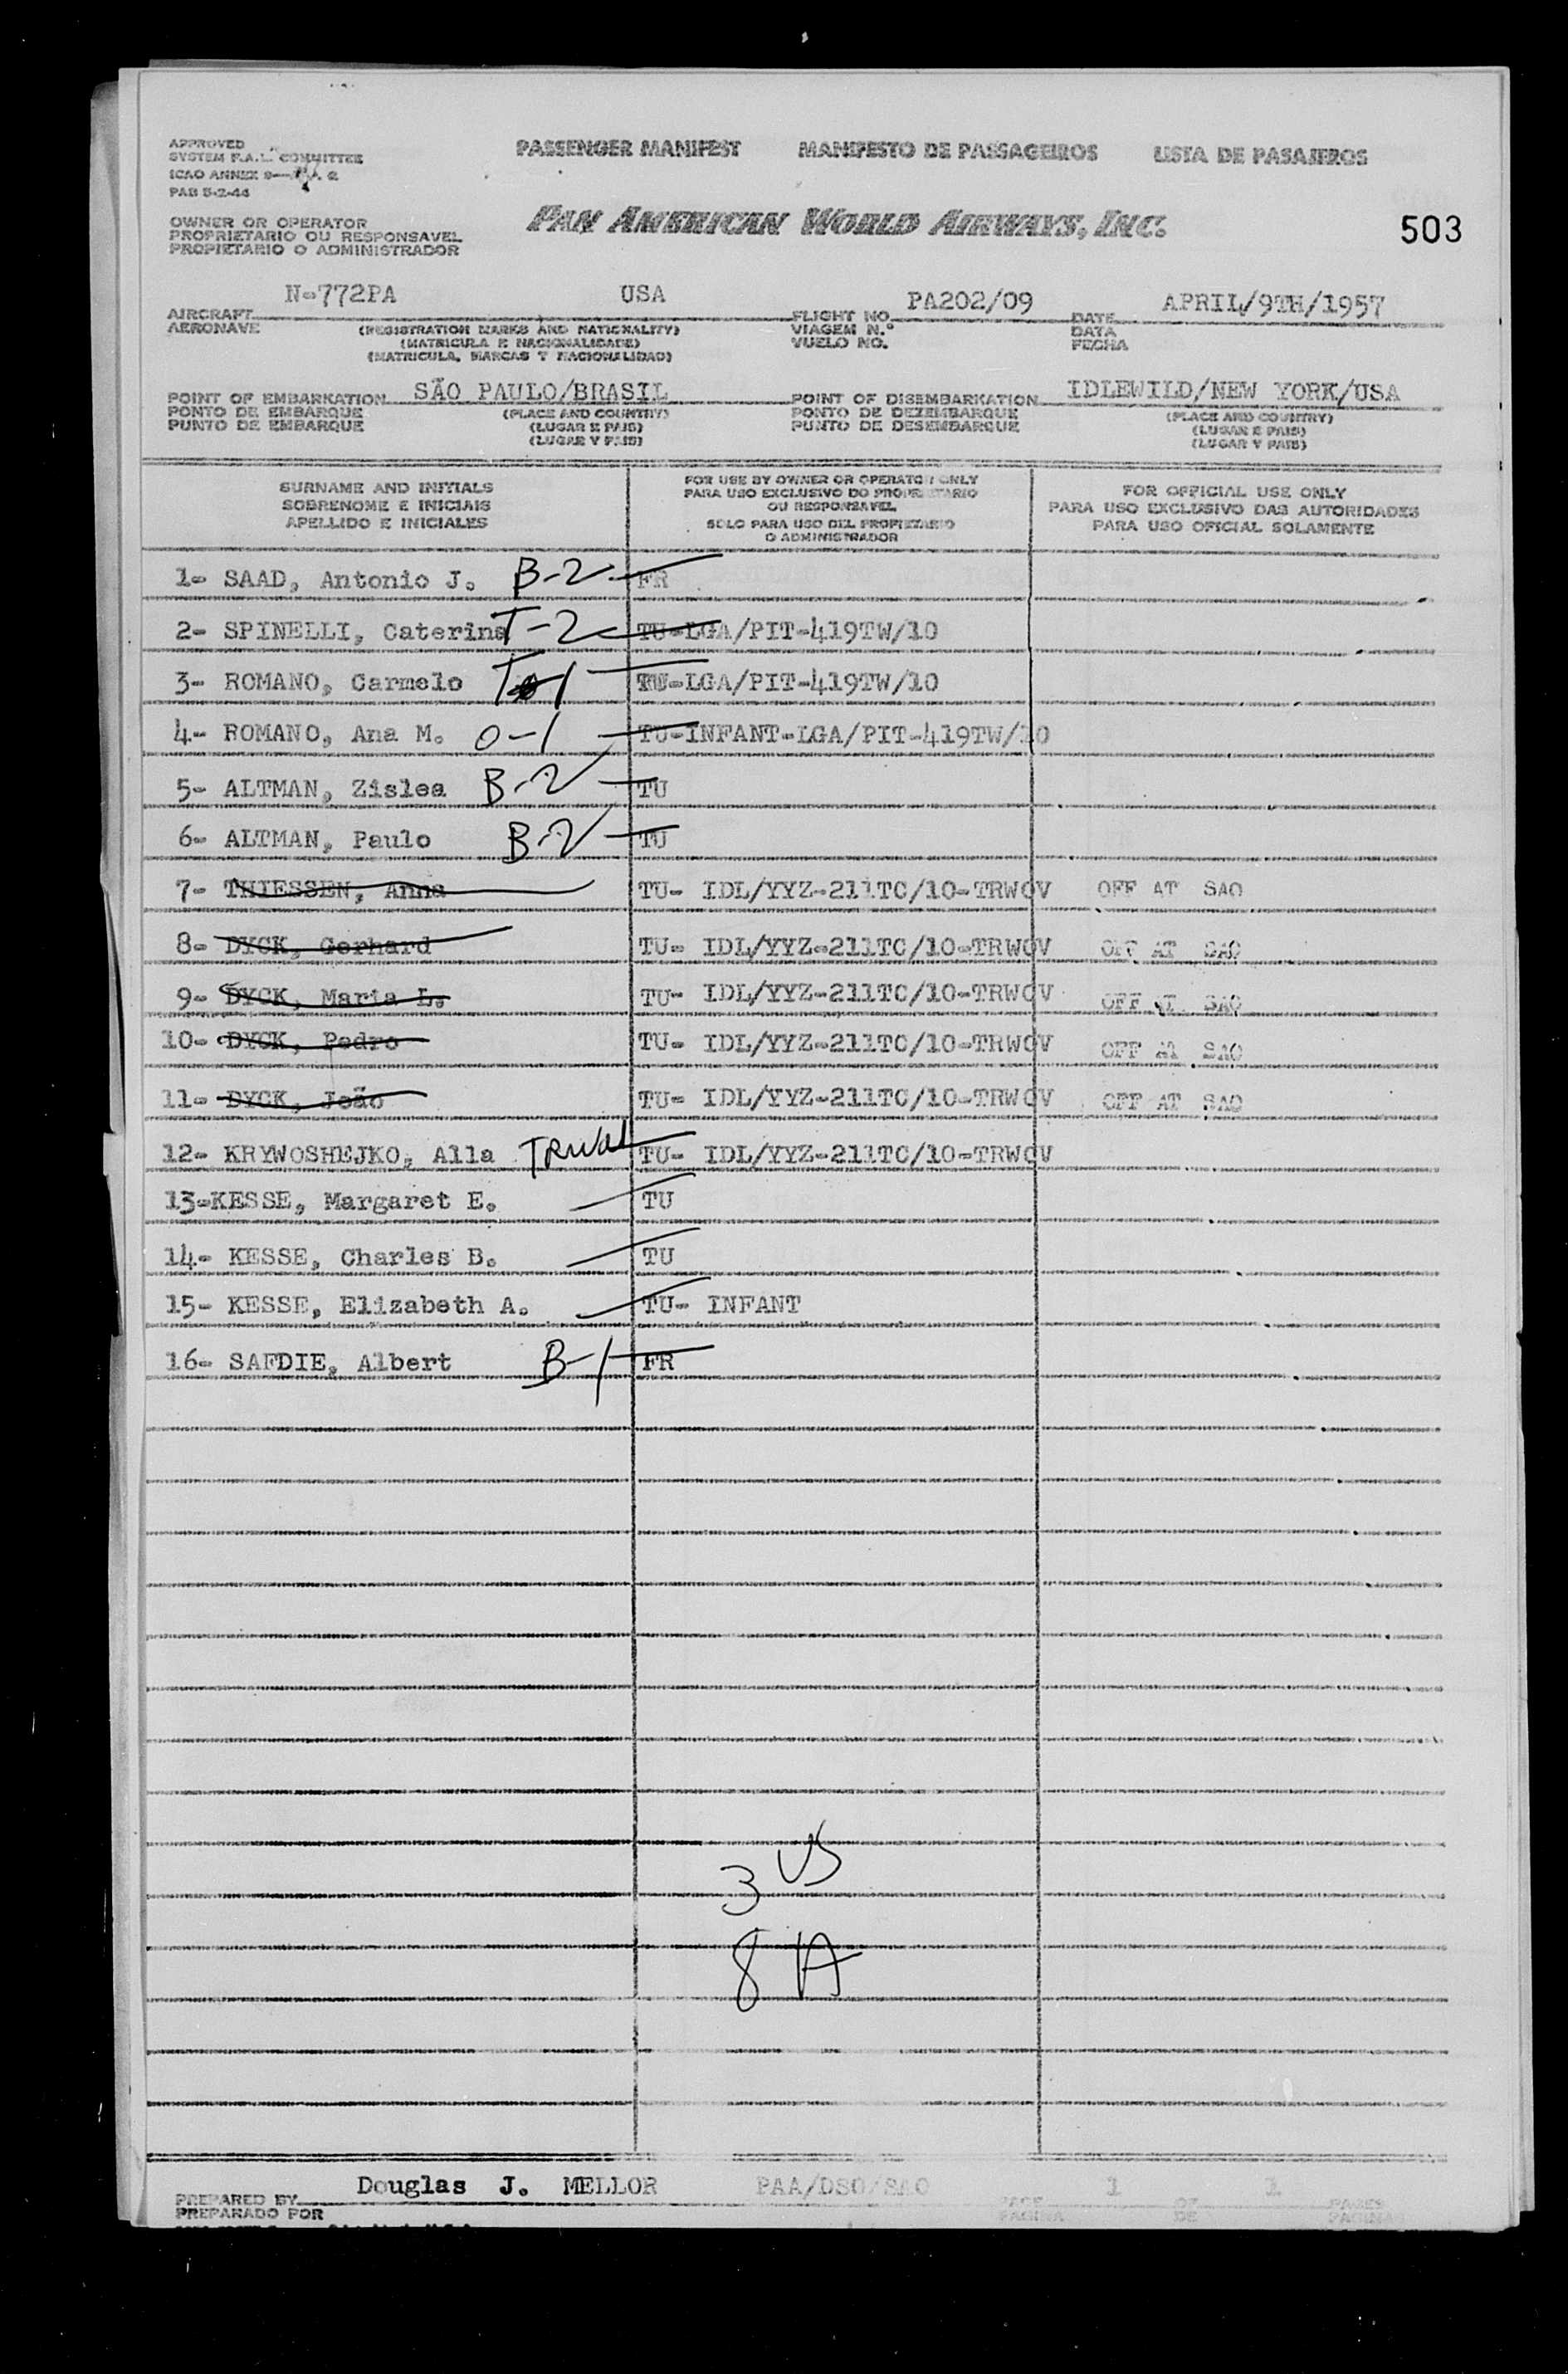 APPROVED
SYSTEM F.A.L. COMMITTEE
ICAO ANNEX 9
PAB 5-2-44
PASSENGER MANIFEST MANIFESTO DE PASSAGEIROS LISTA DE PASAJEROS
OWNER OR OPERATOR
PROPRIETARIO OU RESPONSAVEL
PROPIETARIO O ADMINISTRADOR
PAN AMERICAN WORLD AIRWAYS, INC.
503
N-772PA USA PA202/09 APRIL/9TH/1957
AIRCRAFT
AERONAVE
(REGISTRATION MARKS AND NATIONALITY)
(MATRICULA E NACIONALIDADE)
(MATRICULA, MARCAS Y NACIONALIDAD)
FLIGHT NO.
VIAGEM N.º
VUELO NO.
DATE
DATA
FECHA
POINT OF EMBARKATION SÃO PAULO/BRASIL
PONTO DE EMBARQUE
PUNTO DE EMBARQUE
(PLACE AND COUNTRY)
(LUGAR E PAIS)
(LUGAR Y PAIS)
POINT OF DISEMBARKATION IDLEWILD/NEW YORK/USA
PONTO DE DEZEMBARQUE
PUNTO DE DESEMBARQUE
(PLACE AND COUNTRY)
(LUGAR E PAIS)
(LUGAR Y PAIS)
SURNAME AND INITIALS
SOBRENOME E INICIAIS
APELLIDO E INICIALES
FOR USE BY OWNER OR OPERATOR ONLY
PARA USO EXCLUSIVO DO PROPRIETARIO
OU RESPONSAVEL
SOLO PARA USO DEL PROPIETARIO
O ADMINISTRADOR
FOR OFFICIAL USE ONLY
PARA USO EXCLUSIVO DAS AUTORIDADES
PARA USO OFICIAL SOLAMENTE
1- SAAD, Antonio J. B-2 FR
2- SPINELLI, Caterina T-2 TU-LGA/PIT-419TW/10
3- ROMANO, Carmelo T-1 TU-LGA/PIT-419TW/10
4- ROMANO, Ana M. O-1 TU-INFANT-LGA/PIT-419TW/10
5- ALTMAN, Zislea B-2 TU
6- ALTMAN, Paulo B-2 TU
7- THIESSEN, Anna TU- IDL/YYZ-211TC/10-TRWOV OFF AT SAO
8- DYCK, Gerhard TU- IDL/YYZ-211TC/10-TRWOV OFF AT SAO
9- DYCK, Maria L. TU- IDL/YYZ-211TC/10-TRWOV OFF AT SAO
10- DYCK, Pedro TU- IDL/YYZ-211TC/10-TRWOV OFF AT SAO
11- DYCK, João TU- IDL/YYZ-211TC/10-TRWOV OFF AT SAO
12- KRYWOSHEJKO, Alla TU- IDL/YYZ-211TC/10-TRWOV
13-KESSE, Margaret E. TU
14- KESSE, Charles B. TU
15- KESSE, Elizabeth A. TU- INFANT
16- SAFDIE, Albert B-1 FR
3 US
8 A
PREPARED BY Douglas J. MELLOR PAA/DSO/SAO
PREPARADO POR
PAGE 1 OF 1 PAGES
PAGINA DE PAGINAS